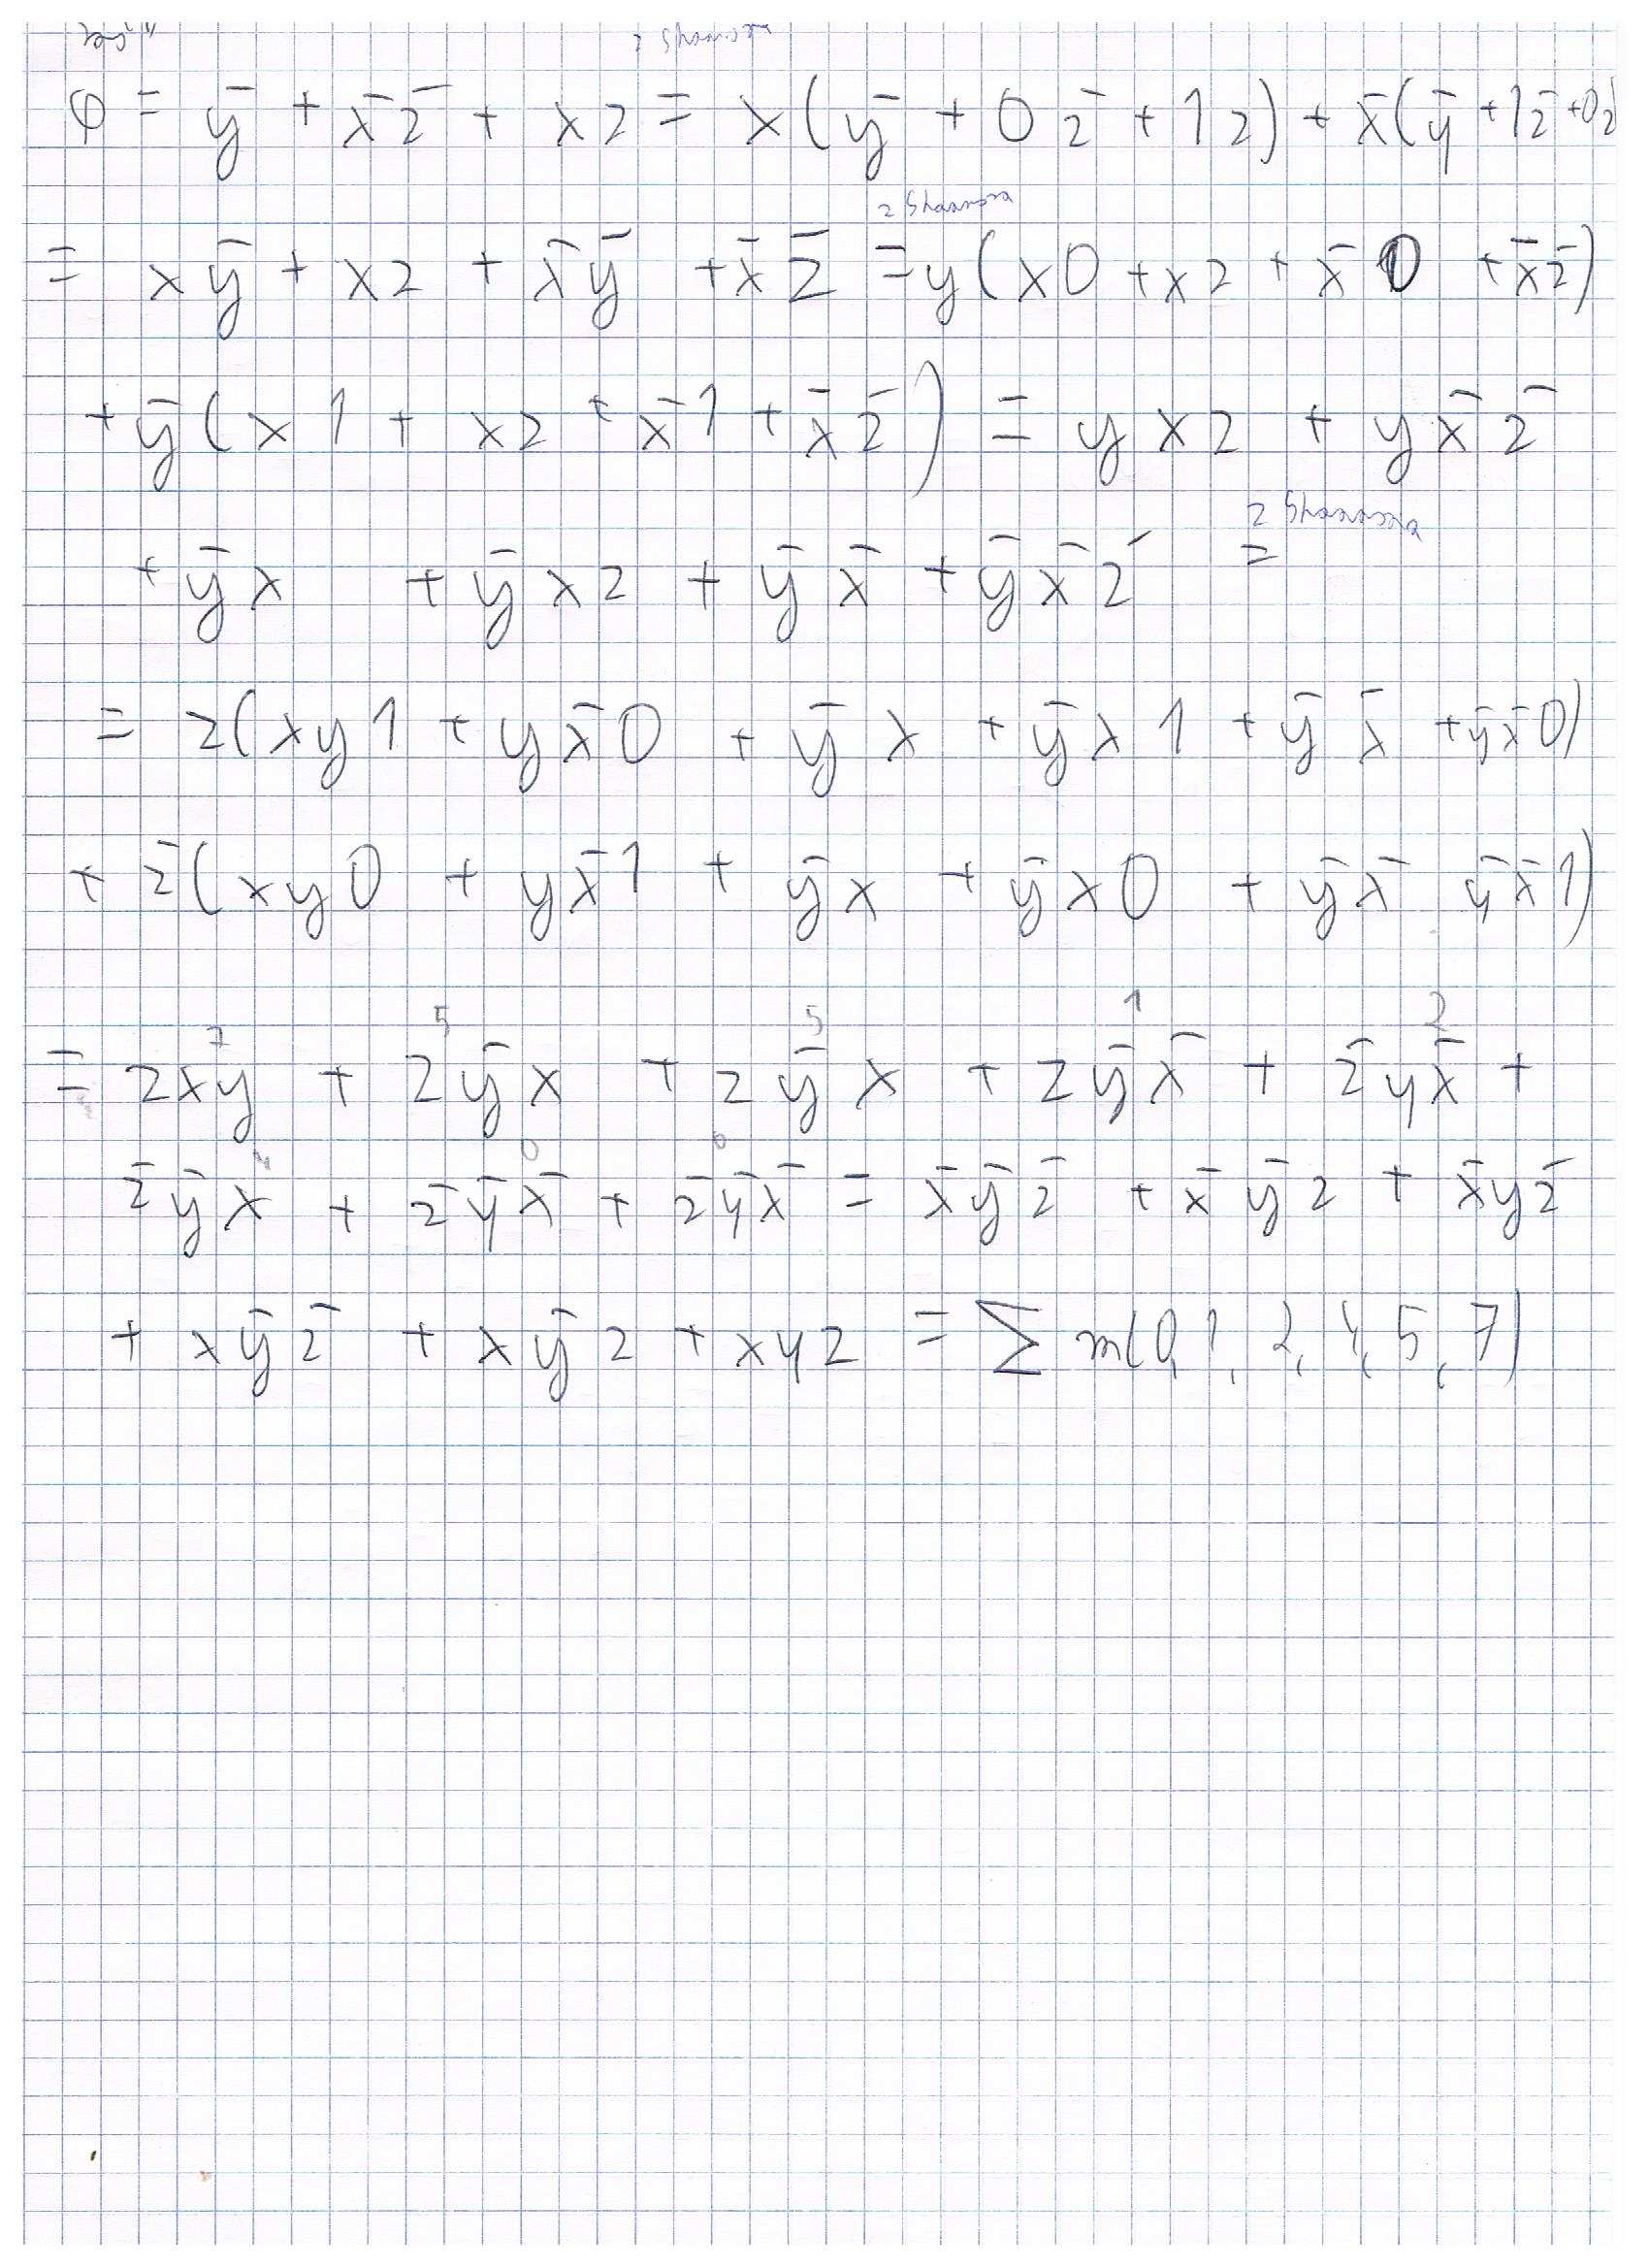 z Shannona
φ = y̅ + x̅z̅ + xz = x(y̅ + 0z̅ + 1z) + x̅(y̅ + 1z̅ + 0z)
z Shannona
= xy̅ + xz + x̅y̅ + x̅z̅ = y(x0 + xz + x̅0 + x̅z̅)
+ y̅(x1 + xz + x̅1 + x̅z̅) = yxz + yx̅z̅
z Shannona
+ y̅x + y̅xz + y̅x̅ + y̅x̅z̅ =
= z(xy1 + yx̅0 + y̅x + y̅x1 + y̅x̅ + y̅x̅0)
+ z̅(xy0 + yx̅1 + y̅x + y̅x0 + y̅x̅ y̅x̅1)
7 5 5 1 2
= zxy + zy̅x + zy̅x + zy̅x̅ + z̅yx̅ +
4 0 0
z̅y̅x + z̅y̅x̅ + z̅y̅x̅ = x̅y̅z̅ + x̅y̅z + x̅yz̅
+ xy̅z̅ + xy̅z + xyz = ∑ m(0,1,2,4,5,7)